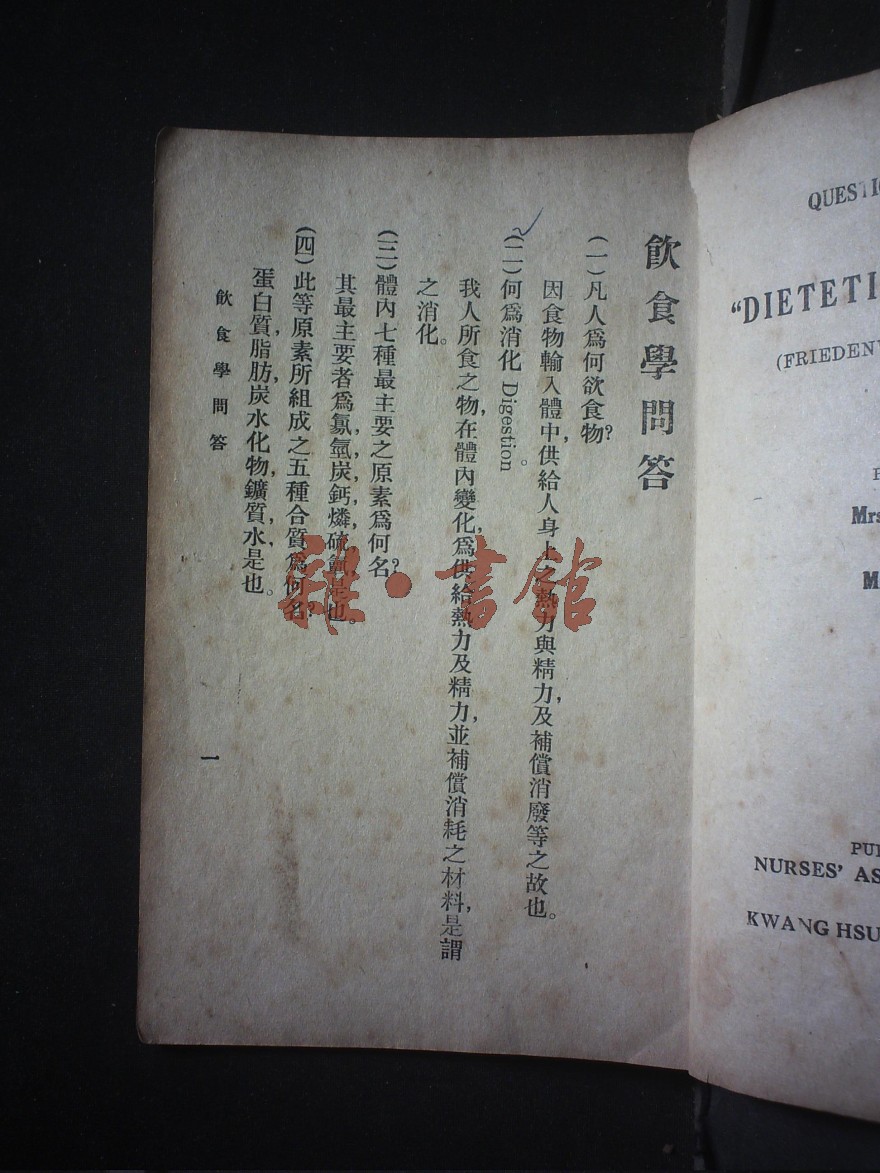 飲食學問答
(一)凡人爲何欲食物?
因食物輸入體中,供給人身上之熱力與精力,及補償消廢等之故也。
(二)何爲消化 Digestion。
我人所食之物,在體內變化,爲供給熱力及精力,並補償消耗之材料,是謂
之消化。
(三)體內七種最主要之原素爲何名?
其最主要者爲氯,氫,炭,鈣,燐,硫,氮是也。
(四)此等原素所組成之五種合質爲何名?
蛋白質,脂肪,炭水化物,鑛質,水是也。
飲食學問答
一
雜·書館
QUESTIO
"DIETETI
(FRIEDENW
Mrs
M
PU
NURSES' AS
KWANG HSU